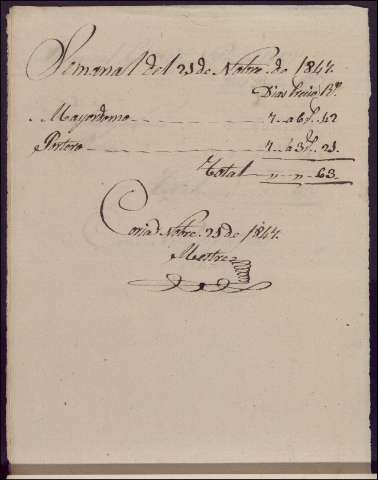 Semanal del 21 de Nobre. de 1847.
Dias Precio Rs.
Mayordomo 7. a 6 42
Portero 7. á 3 21.
Total " " 63.
Coria Nobre. 21 de 1847.
Mestre